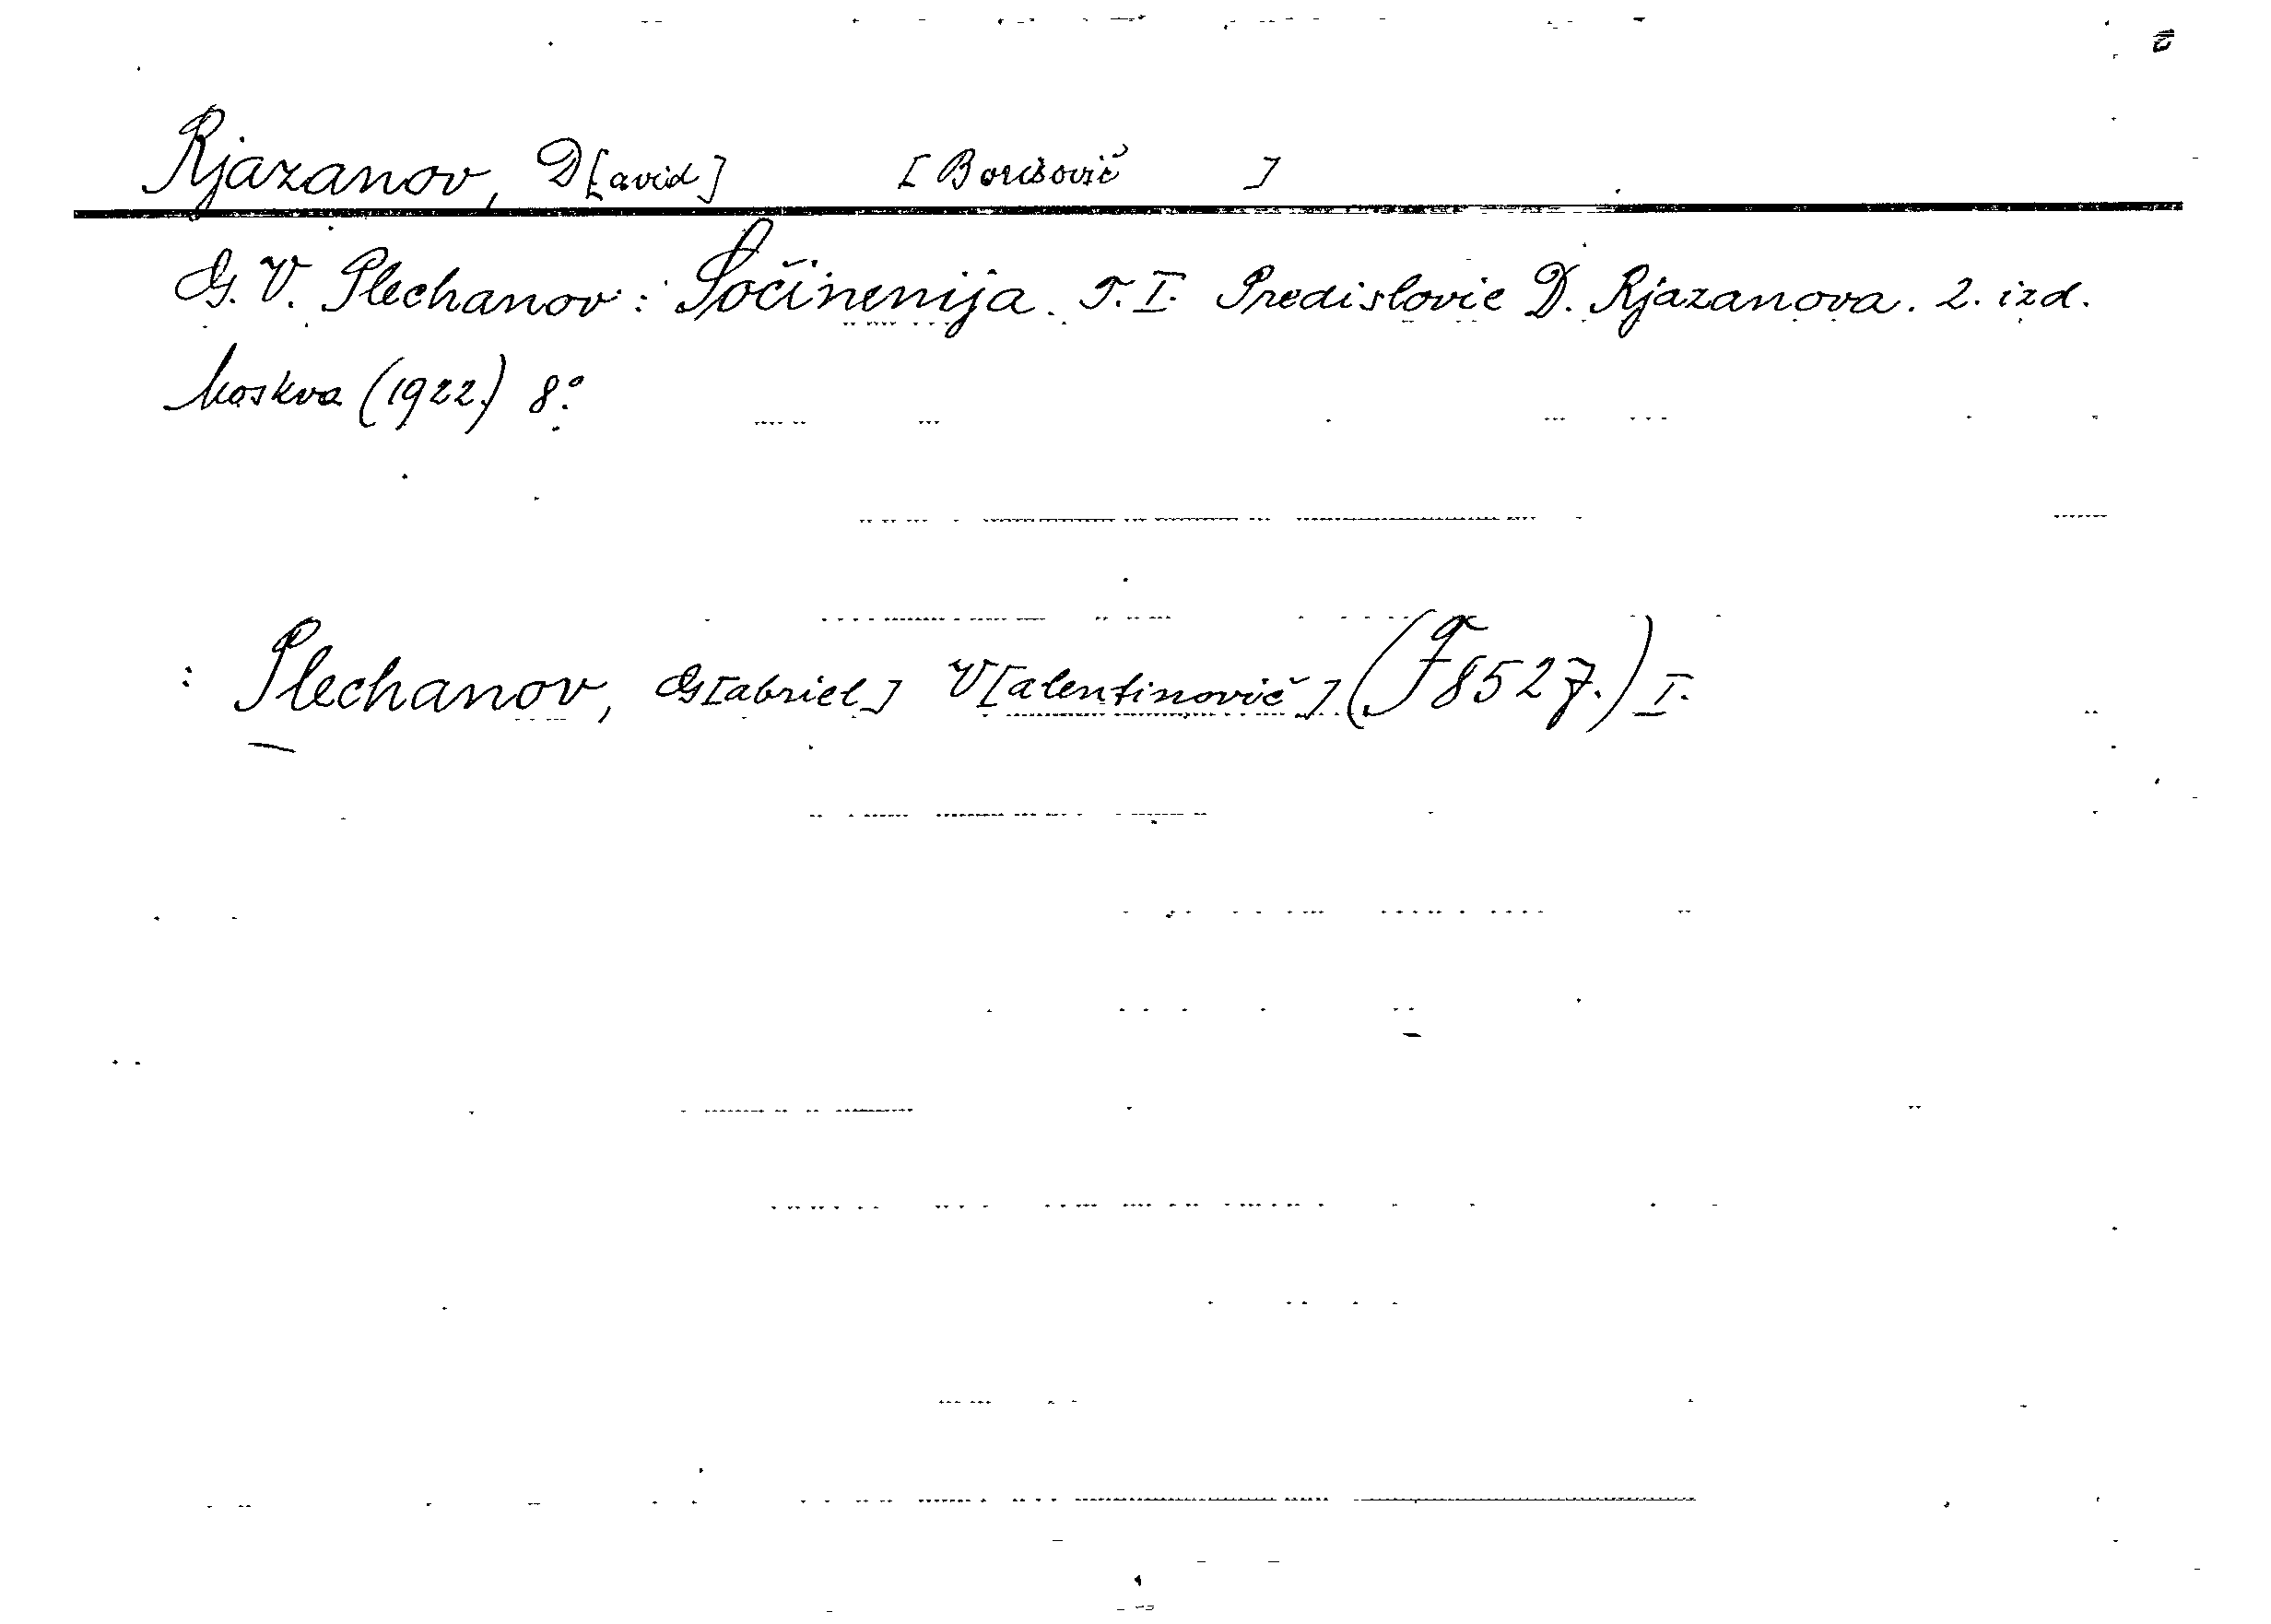 Rjazanov, D[avid] [Borisovič ]
G. V. Plechanov: Sočinenija. T. I. Predislovie D. Rjazanova. 2. izd.
Moskva (1922.) 8°.
: Plechanov, G[abriel] V[alentinovič] (F 8527.) I.